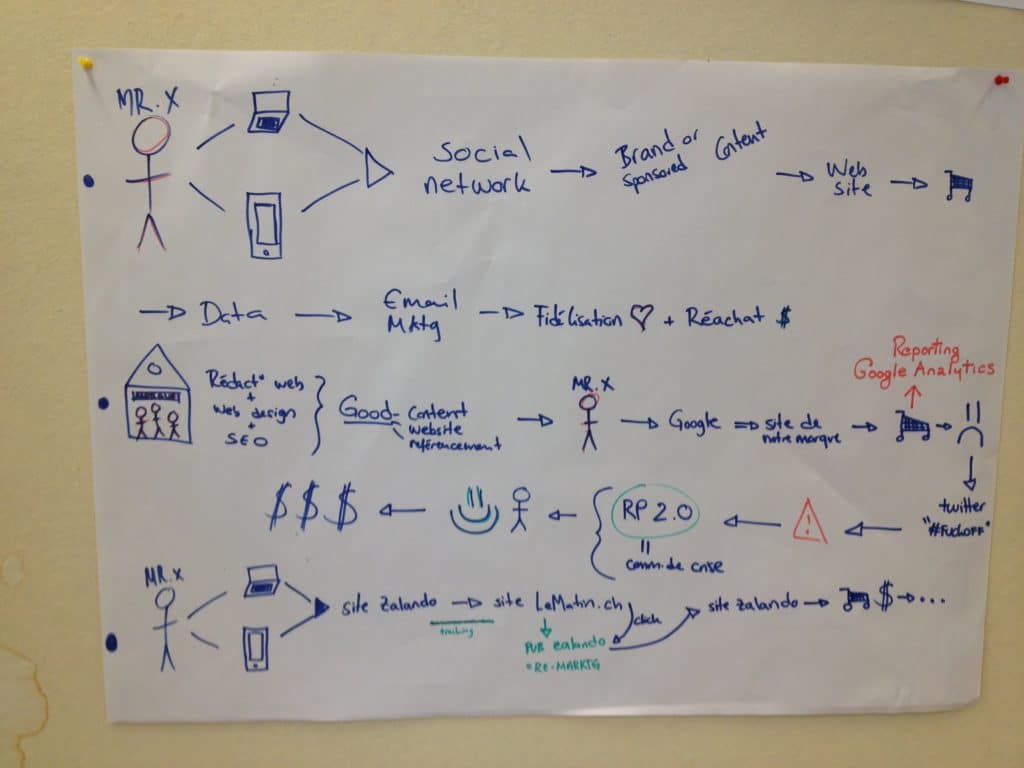 MR. X
Social network → Brand or sponsored Content → Web site →
→ Data → Email Mktg → Fidélisation ♡ + Réachat $
Rédact° web
+
Web design
+
SEO
Good
Content
website
référencement
→ MR. X → Google ⇒ site de notre marque →
Reporting
Google Analytics
twitter
"#FuckOFF"
RP 2.0
=
comm. de crise
$ $ $
MR. X
site zalando → site LeMatin.ch
tracking
click
PUB zalando
*RE-MARKTG
site zalando → $ → ...